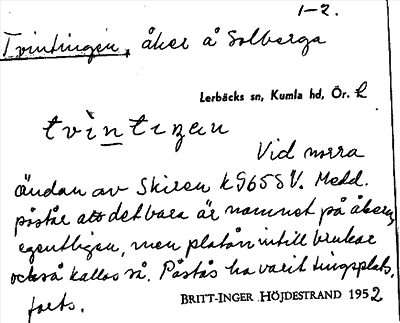 1-2.
Tvintingen, åker å Solberga
Lerbäcks sn, Kumla hd, Ör. l.
tvintiŋan
Vid norra
ändan av Skiren k9658V. Medd.
påstår att det bara är namnet på åkern,
egentligen, men platån intill brukar
också kallas så. Påstås ha varit tingsplats,
forts.
BRITT-INGER HÖJDESTRAND 1952